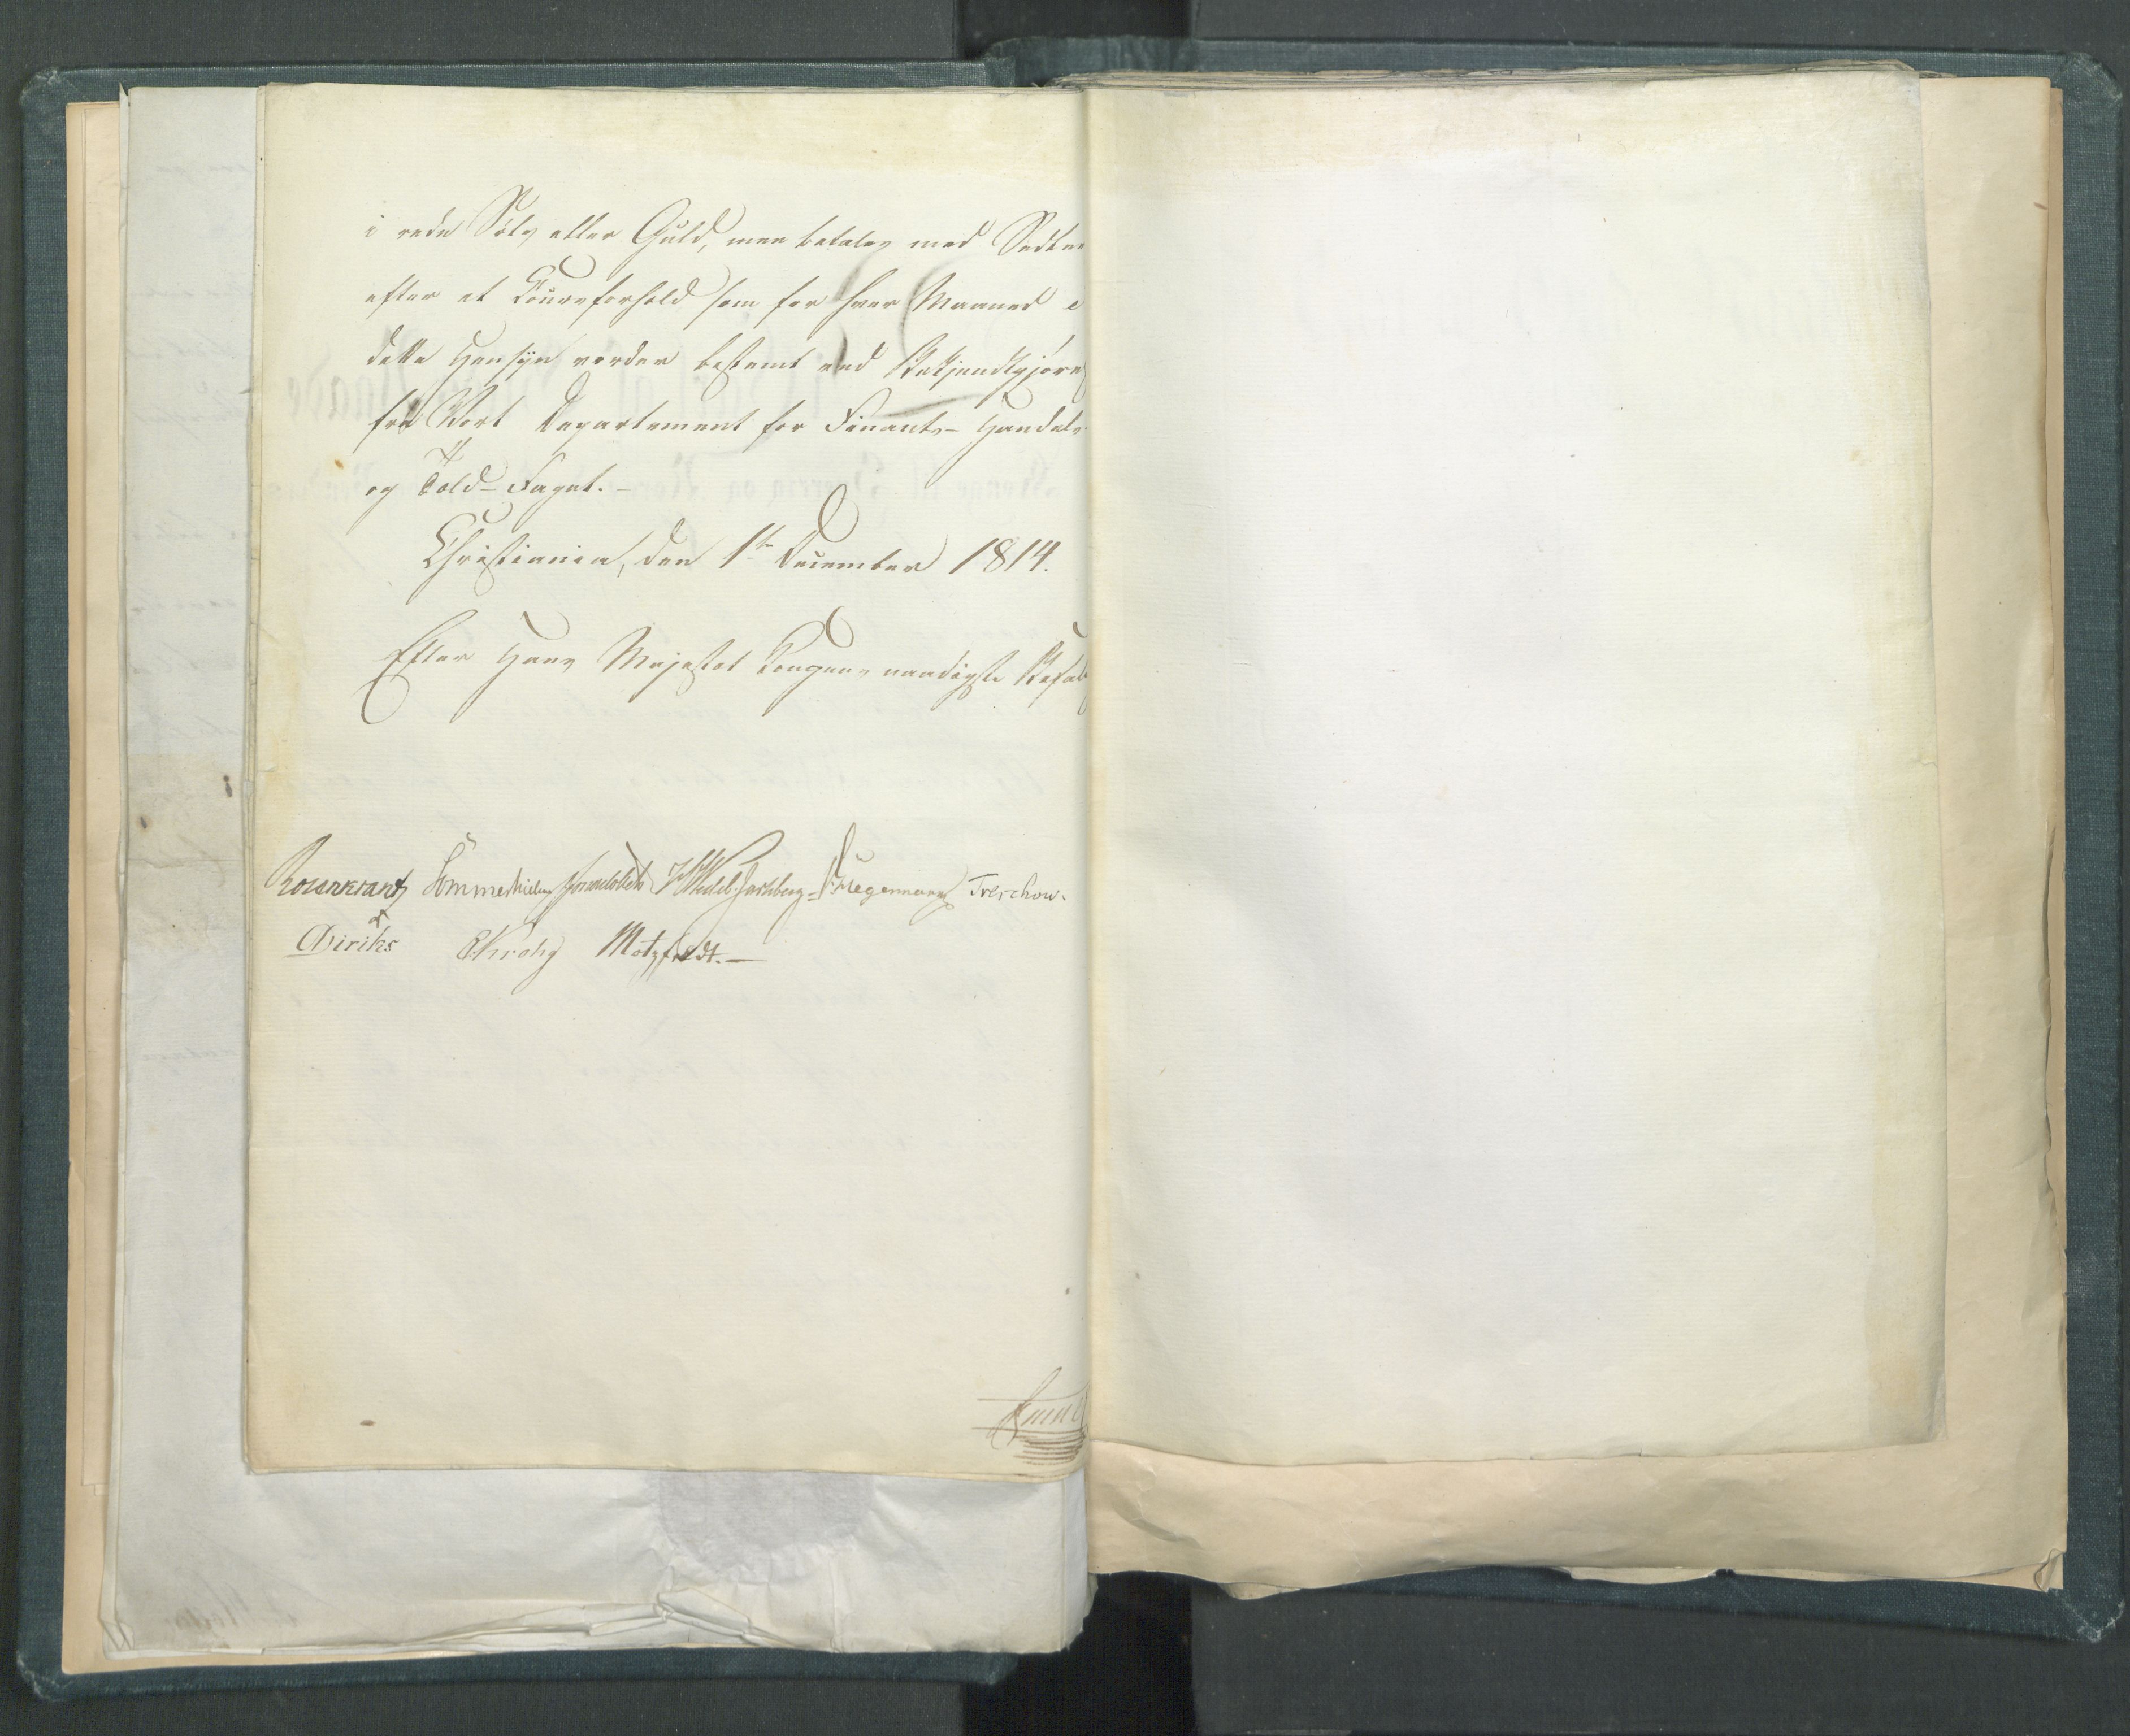 i rede Sølv eller Guld, men betales med Sedler
efter et Coursforhold som for hver Maaned i
dette Hensyn vorder bestemt ved Bekjendtgjørel
fra Vort Departement for Finants- Handels-
og Told-Faget. -
Christiania, den 1te December 1814.
Efter Hans Majestæt Kongens naadigste Befal
Rosenkrantz Sommerhielm Wedel-Jarlsberg - Hegermann Treschow.
Diriks CKrohg Motzfeldt. -